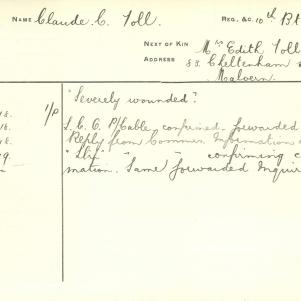 NAME Claude C. Toll. REG. &C. 10th B
NEXT OF KIN Mrs Edith Toll
ADDRESS Cheltenham
Malvern.
"Severely wounded."
1/P S.C.C. P/Cable, confirmed. forwarded
Reply from Commn. Information
" " " confirming
mation. Same forwarded Inquir